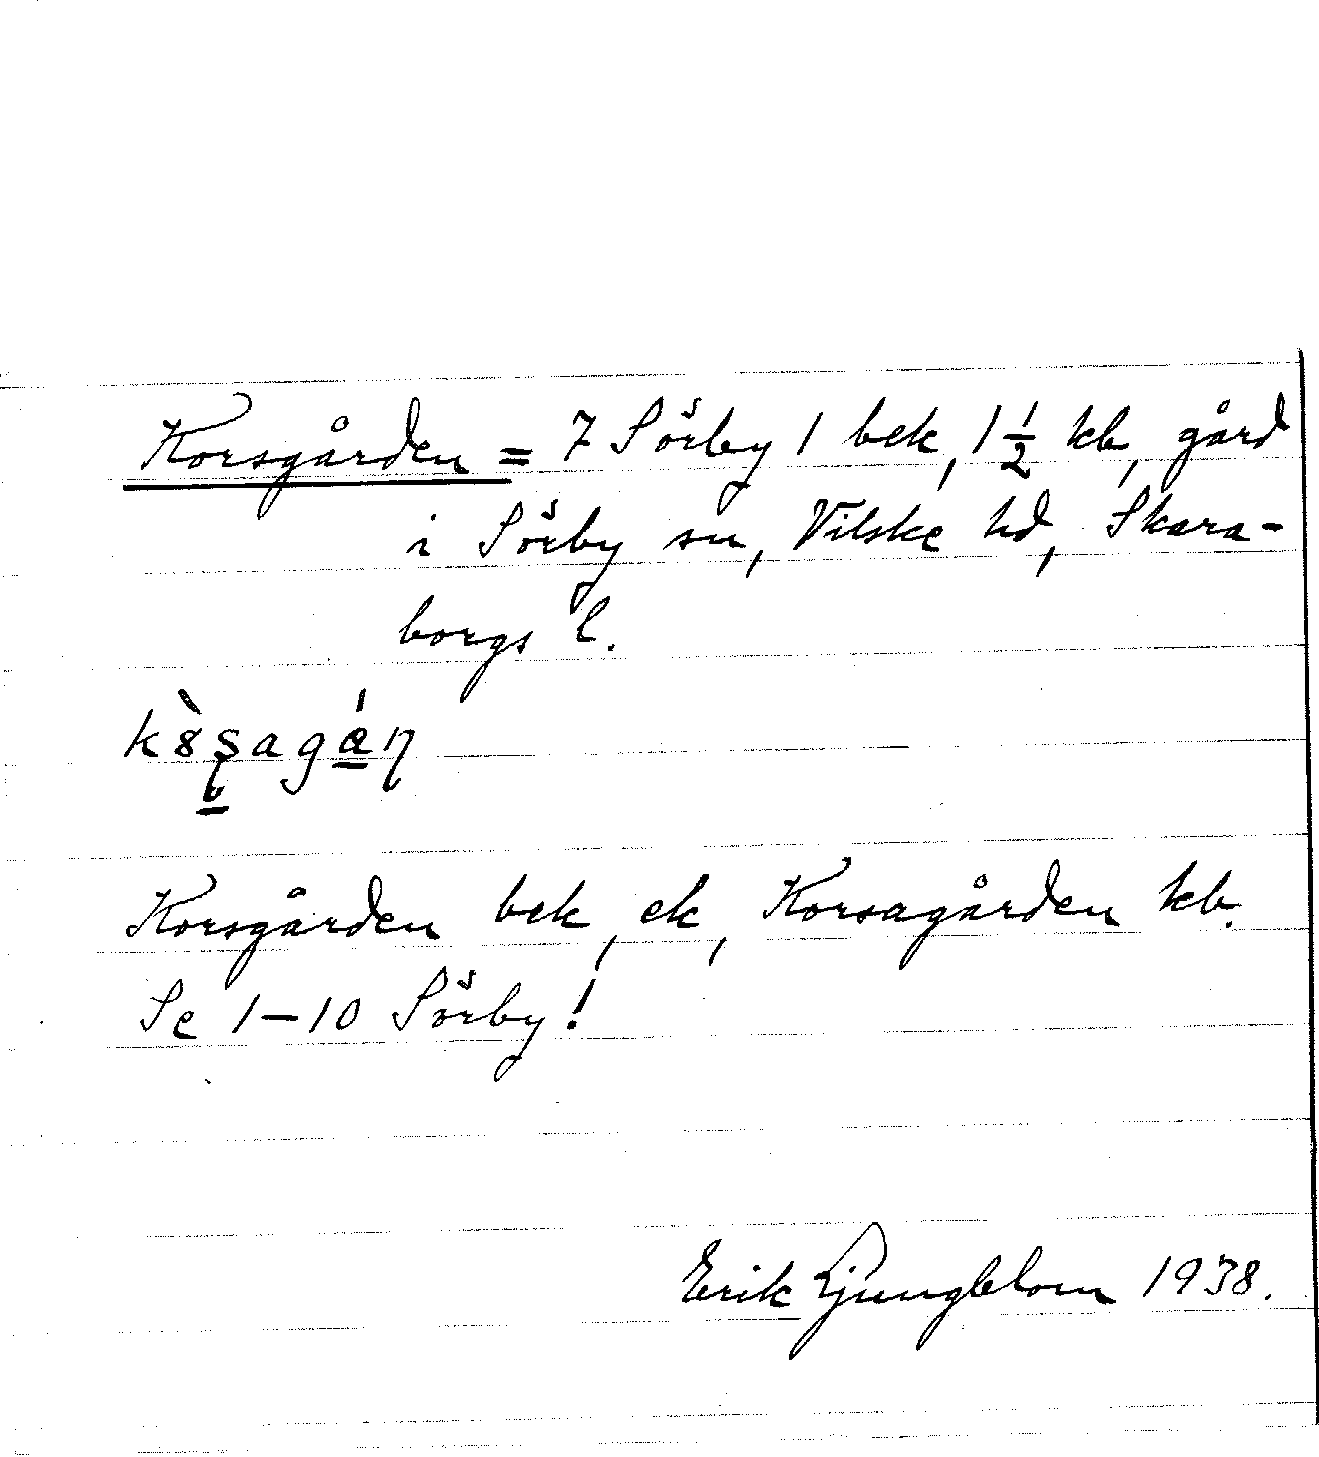 Korsgården = 7 Sörby 1 bek, 1 1/2 kb, gård
i Sörby sn, Vilske hd, Skara-
borgs l.
Korsgården bek, ek, Korsagården kb.
Se 1-10 Sörby!
Erik Ljungblom 1938.